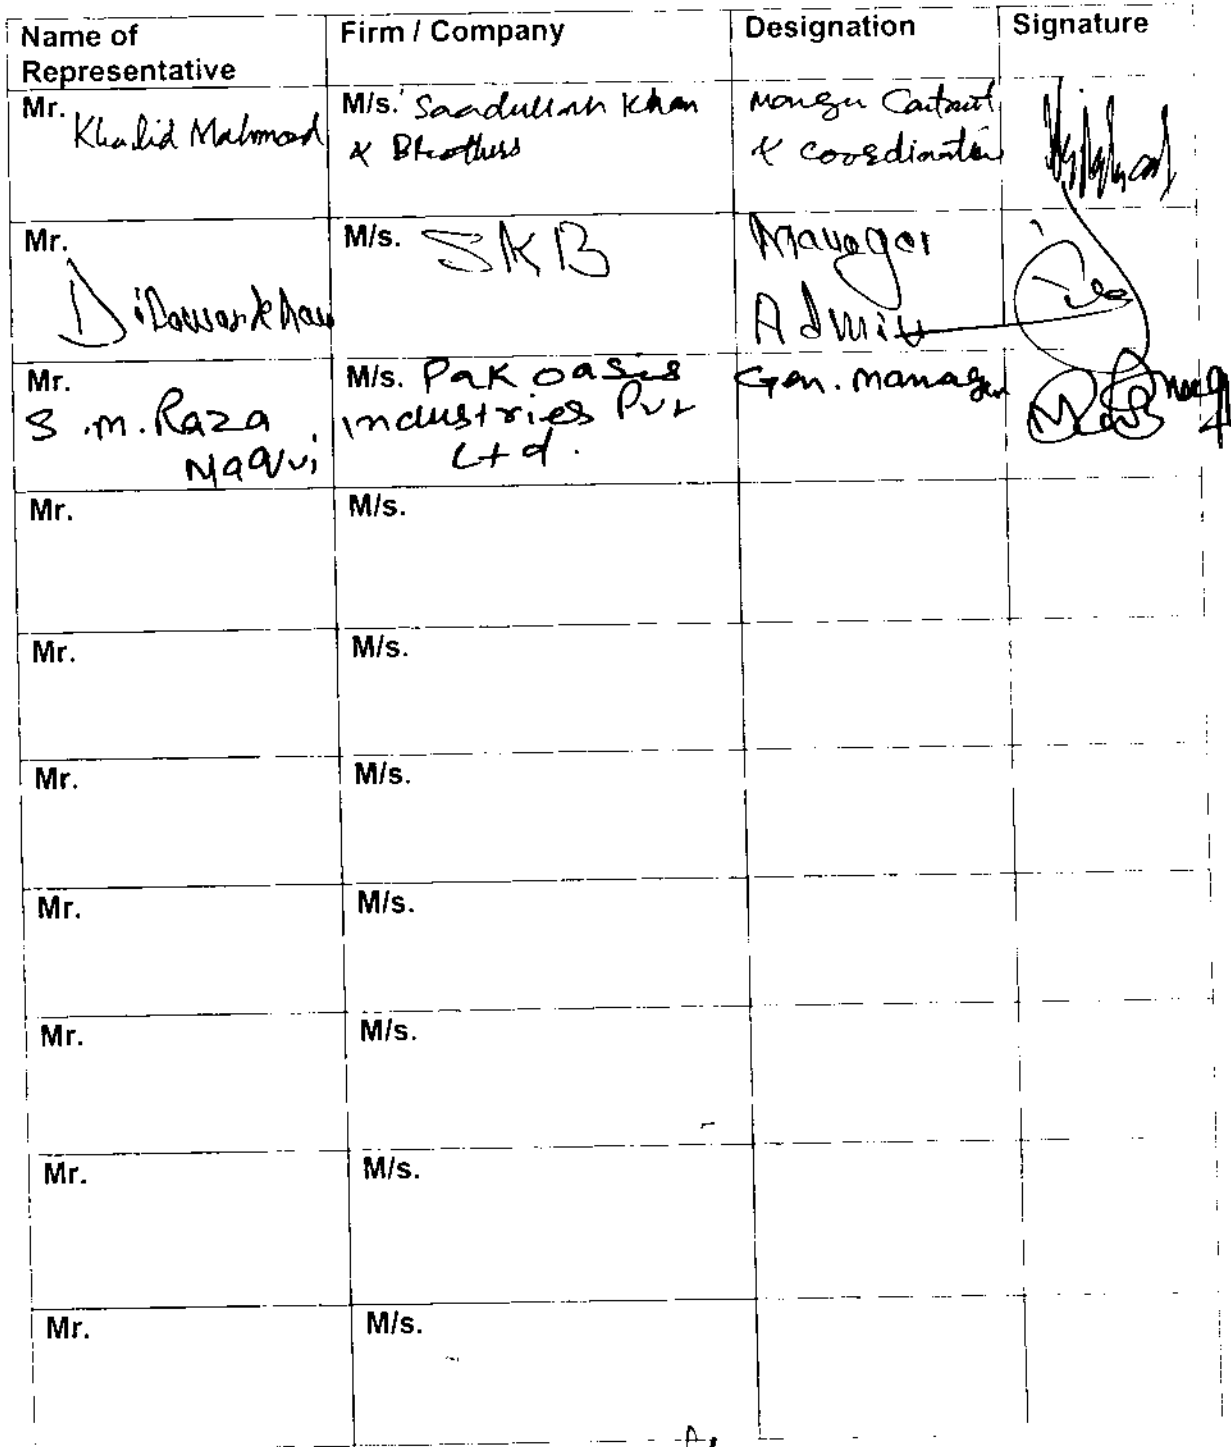 Name of Representative | Firm / Company | Designation | Signature
Mr. Khalid Mahmood | M/s. Saadullah Khan
& Brothers | Manger Contract
& Coordination
Mr. Dilawar Khan | M/s. SKB | Manager
Admin
Mr. S.m. Raza
Naqvi | M/s. Pak oasis
industries Pvt
Ltd. | Gen. manager
Mr. | M/s.
Mr. | M/s.
Mr. | M/s.
Mr. | M/s.
Mr. | M/s.
Mr. | M/s.
Mr. | M/s.